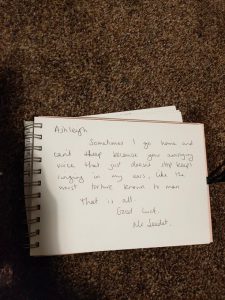 Ashleigh
Sometimes I go home and
cant sleep because your annoying
voice that just doesnt stop keeps
ringing in my ears, like the
worst torture known to man
That is all.
Good luck.
Mr